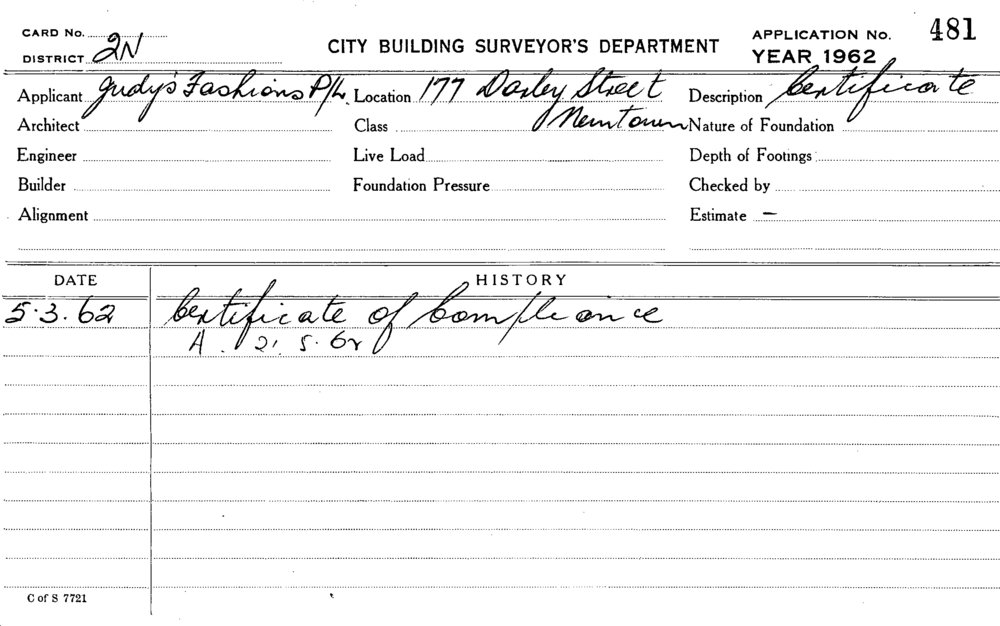 CARD No.
DISTRICT 2N
CITY BUILDING SURVEYOR'S DEPARTMENT
APPLICATION No. 481
YEAR 1962
Applicant Judy's Fashions P/L. Location 177 Darley Street Description Certificate
Architect Class Newtown Nature of Foundation
Engineer Live Load Depth of Footings
Builder Foundation Pressure Checked by
Alignment Estimate —
DATE HISTORY
5.3.62 Certificate of Compliance
A. 21.5.62
C of S 7721